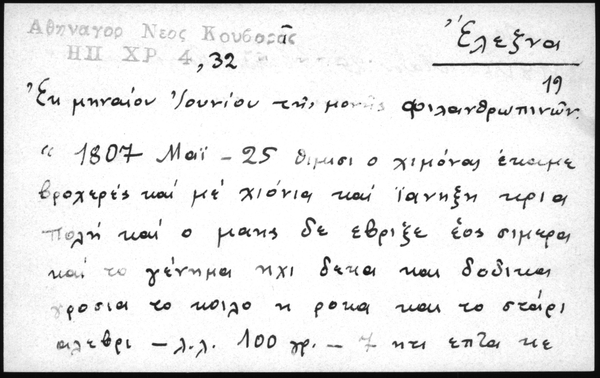 Αθηναγορ Νεος Κουβαρᾶς
ΗΠ ΧΡ 4, 32
Ἔλεξνα
19
Ἐκ μηναίου Ἰουνίου τῆς μονῆς Φιλανθρωπινῶν.
" 1807 Μαϊ - 25 θιμισι ο χιμόνας έκαμε
βροχερές και μέ χιόνια και ϊανηξη κρια
πολή και ο μαης δε εβριξε έος σιμερα
και το γένημα ηχι δεκα και δοδικα
γροσια το κοιλο η ροκα και το στάρι
αλεβρι - λ.λ. 100 γρ. - 7 ητι επτα κε